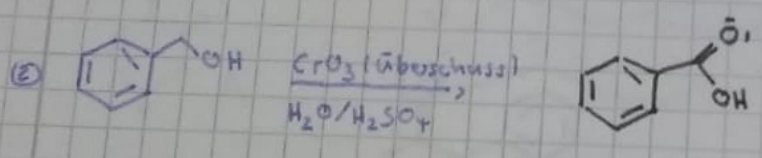 ②
OH
CrO₃ (Überschuss)
H₂O/H₂SO₄
O
OH